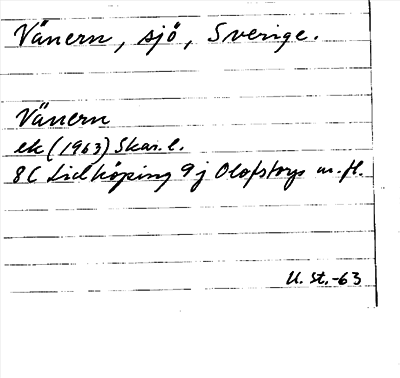 Vänern, sjö, Sverige.
Vänern
ek (1963) Skar. l.
8C Lidköping 9j Olofstorp m. fl.
U. St. -63